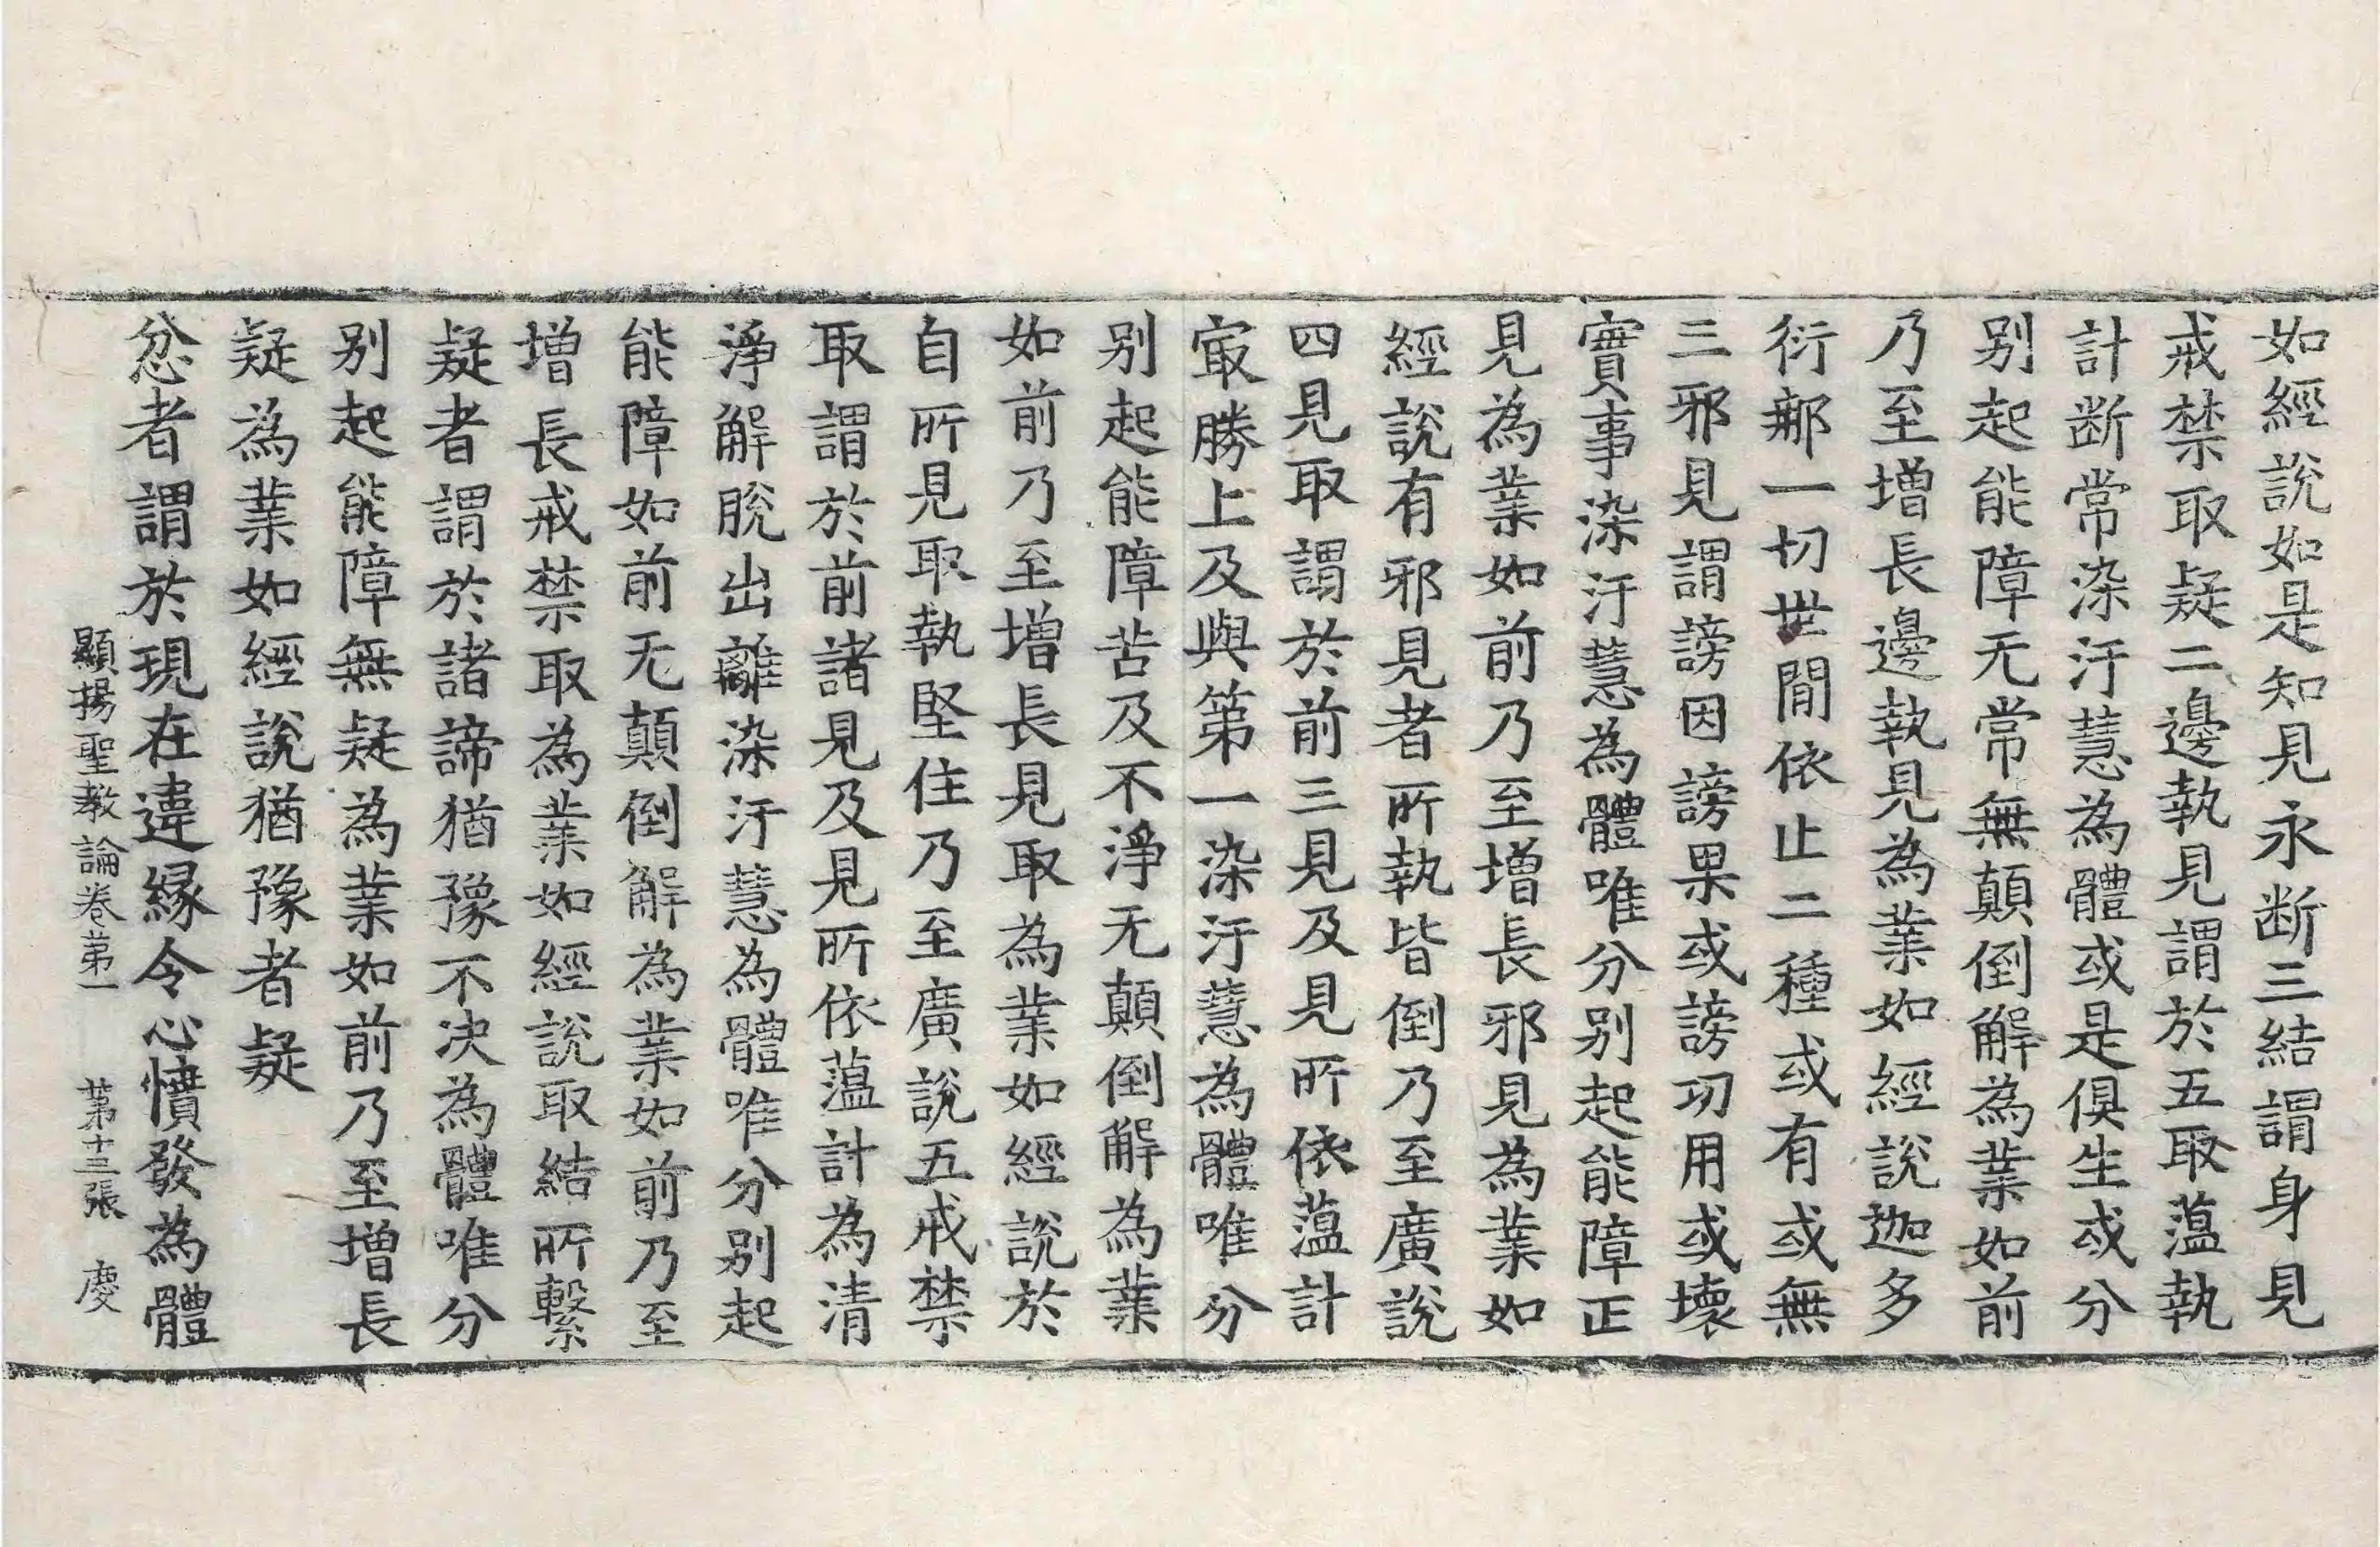 如經說如是知見永断三結謂身見
戒禁取疑二邊執見謂於五取薀執
計断常染汙慧為體或是俱生或分
别起能障无常無顛倒解為業如前
乃至增長邊執見為業如經說迦多
衍那一切世間依止二種或有或無
三邪見謂謗因謗果或謗功用或壞
實事染汙慧為體唯分别起能障正
見為業如前乃至增長邪見為業如
經說有邪見者所執皆倒乃至廣說
四見取謂於前三見及見所依薀計
㝡勝上及與第一染汙慧為體唯分
别起能障苦及不淨无顛倒解為業
如前乃至增長見取為業如經說於
自所見取執堅住乃至廣說五戒禁
取謂於前諸見及見所依薀計為清
淨解脫出離染汙慧為體唯分别起
能障如前无顛倒解為業如前乃至
增長戒禁取為業如經說取結所繫
疑者謂於諸諦猶豫不决為體唯分
别起能障無疑為業如前乃至增長
疑為業如經說猶豫者疑
忿者謂於現在違緣令心憤發為體
顯揚聖教論卷第一 第十三張 慶